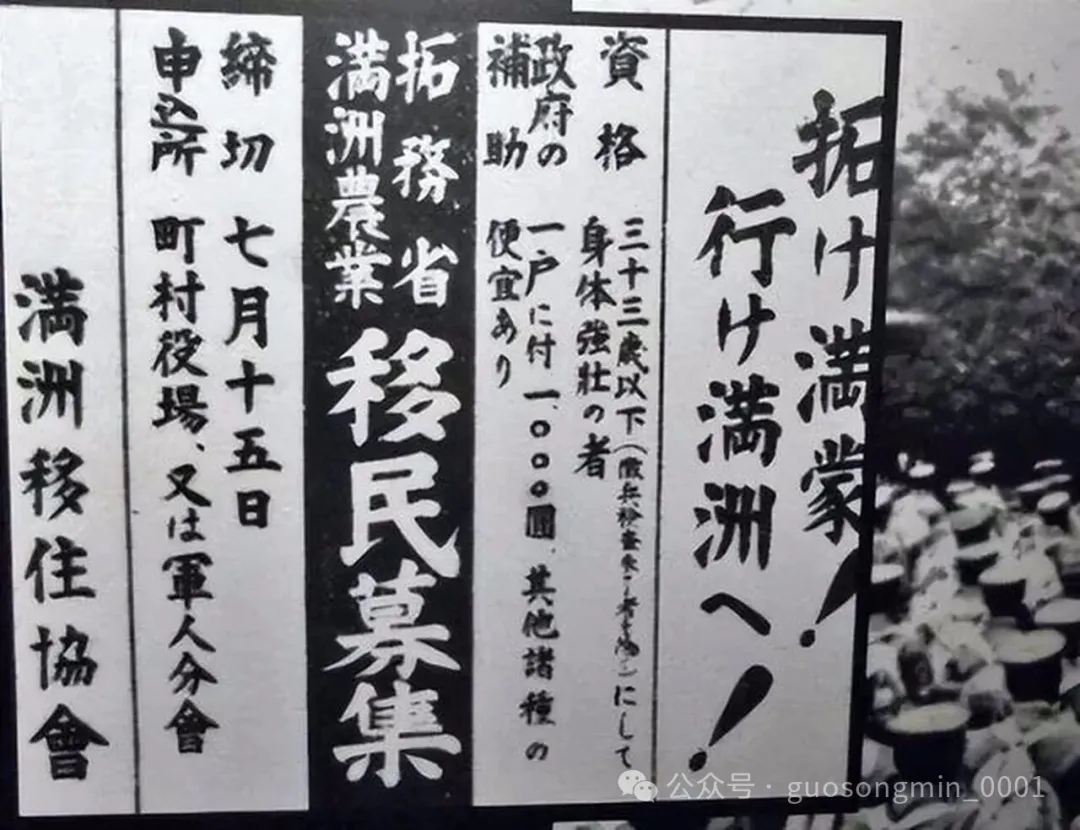 拓け満蒙!
行け満洲へ!
資格
三十三歳以下(徴兵検査未了者も可)にして
身体強壮の者
政府の補助
一戸に付一、〇〇〇圓、其他諸種の
便宜あり
拓務省
満洲農業
移民募集
締切 七月十五日
申込所 町村役場、又は軍人分會
満洲移住協會
公众号 · guosongmin_0001